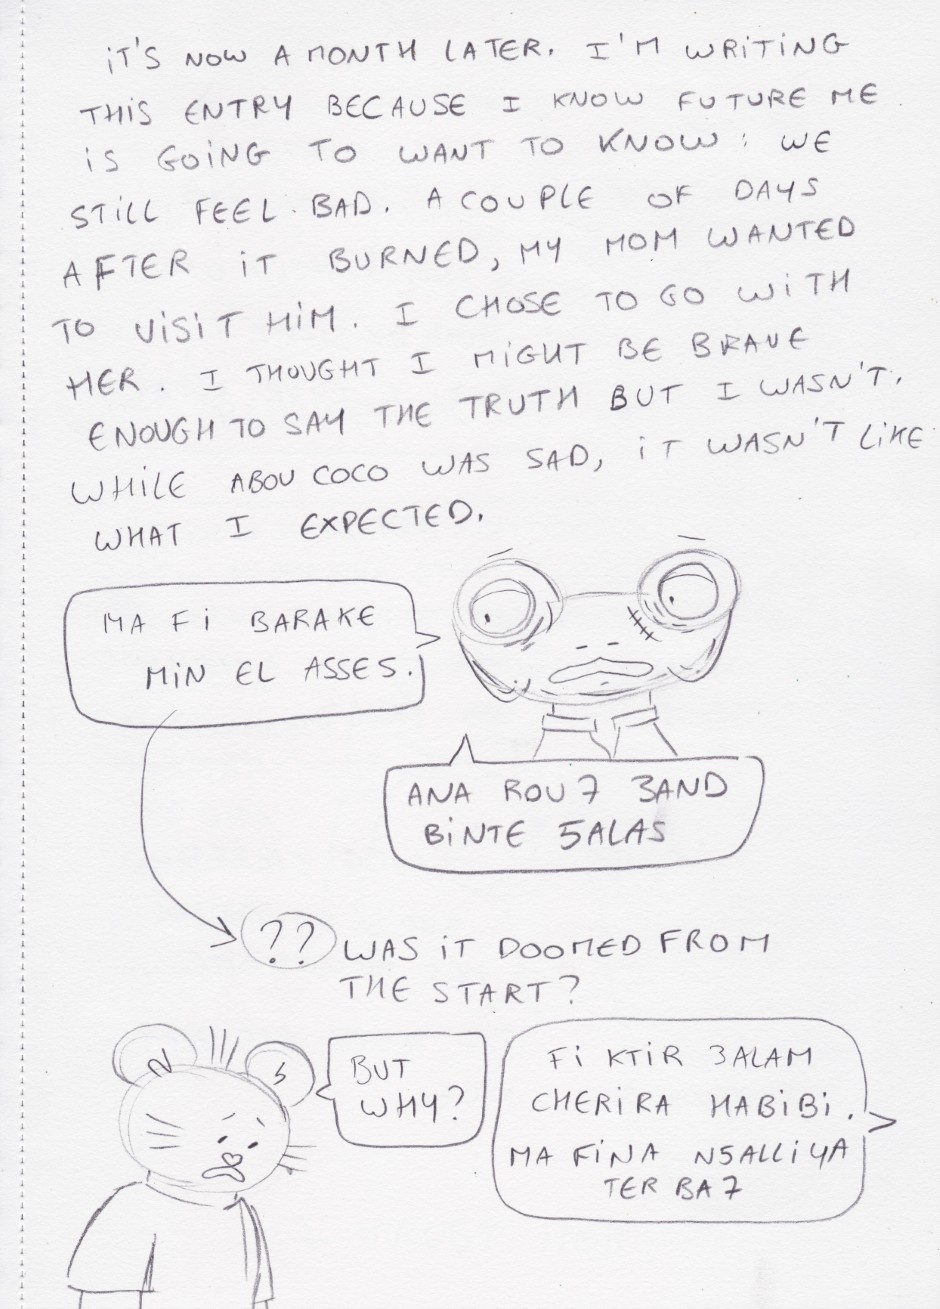 iT'S NOW A MONTH LATER. I'M WRITING
THIS ENTRY BECAUSE I KNOW FUTURE ME
iS GOING TO WANT TO KNOW: WE
STILL FEEL BAD. A COUPLE OF DAYS
AFTER iT BURNED, MY MOM WANTED
TO VISIT HIM. I CHOSE TO GO WITH
HER. I THOUGHT I MIGHT BE BRAVE
ENOUGH TO SAY THE TRUTH BUT I WASN'T.
WHILE ABOU COCO WAS SAD, iT WASN'T LIKE
WHAT I EXPECTED.
MA Fi BARAKE
MIN EL ASSES.
ANA ROU7 3AND
BINTE 5ALAS
?? WAS iT DOOMED FROM
THE START?
N
S
BUT
WHY?
Fi KTIR 3ALAM
CHERIRA HABIBI.
MA FINA N5ALLIYA
TERBA7